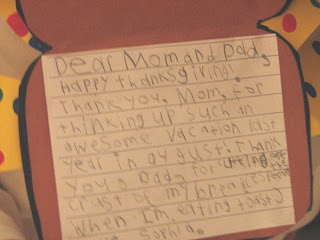 Dear Mom and Dad,
Happy thanksgiving!
Thank you, Mom, for
thinking up such an
awesome vacation last
year in august. Thank
you, Dad, for
crust of my
When I'm etting toast)
Sophia.